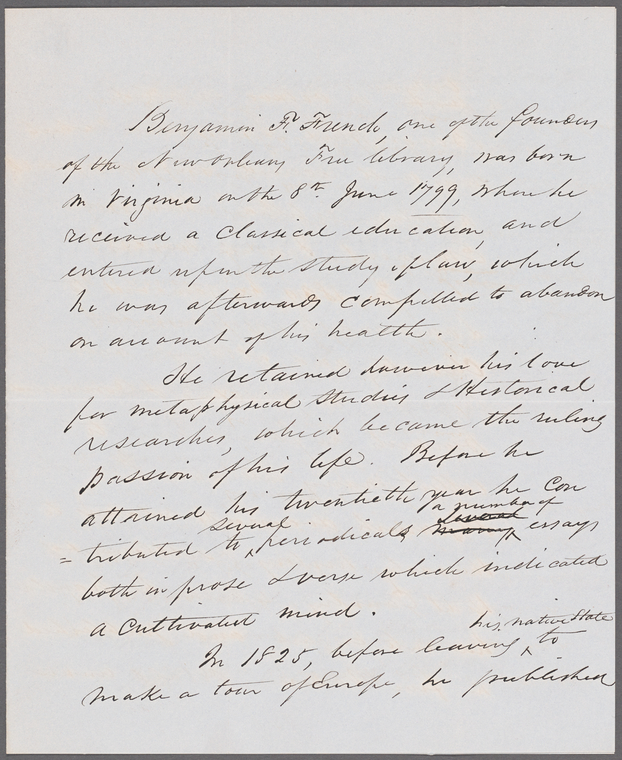 Benjamin F. French, one of the founders
of the New Orleans Free library, was born
in Virginia on the 8th June 1799, where he
received a classical education, and
entered upon the study of law, which
he was afterwards compelled to abandon
on account of his health.
He retained however his love
for metaphysical studies & Historical
researches, which became the ruling
passion of his life. Before he
attained his twentieth year he con
a number of
several
several
= tributed to periodicals many essays
both in prose & verse which indicated
a cultivated mind.
his native State
In 1825, before leaving to
make a tour of Europe, he published